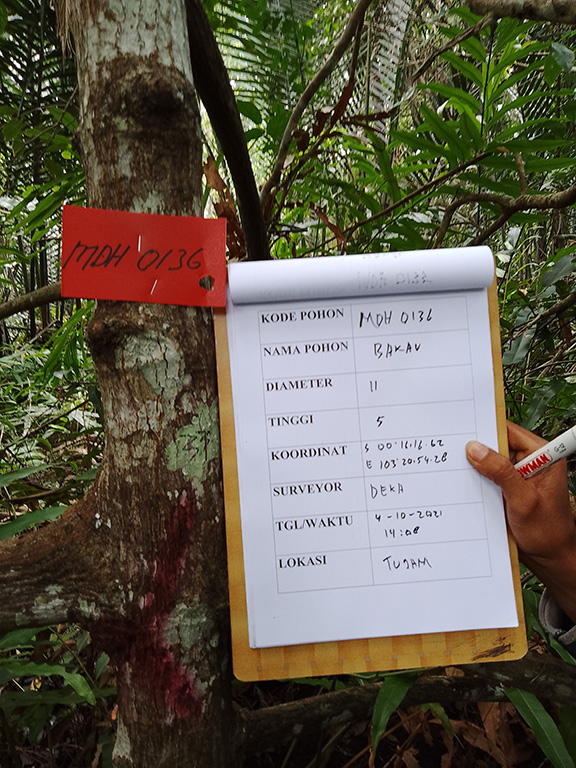 MDH 0136
KODE POHON MDH 0136
NAMA POHON BAKAU
DIAMETER 11
TINGGI 5
KOORDINAT S 00°16.16.62
E 103°20.54.28
SURVEYOR DEKA
TGL/WAKTU 4-10-2021
14:08
LOKASI TUJAM